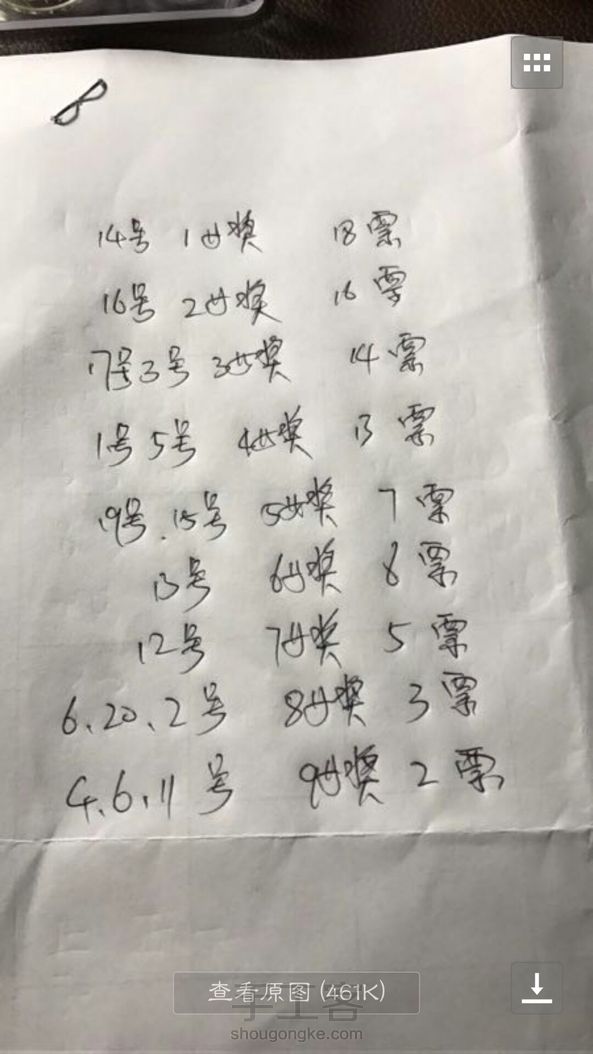 14号 1等奖 18票
16号 2等奖 16票
17号3号 3等奖 14票
1号5号 4等奖 13票
19号.15号 5等奖 7票
13号 6等奖 6票
12号 7等奖 5票
6.20.2号 8等奖 3票
4.6.11号 9等奖 2票
查看原图 (461K)
手工客
shougongke.com